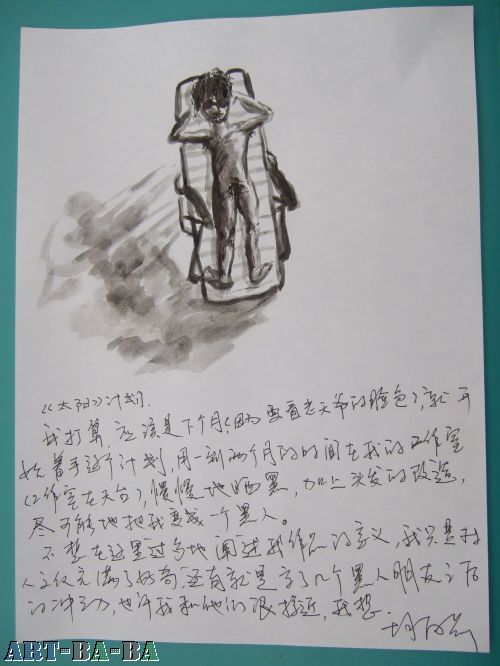 《太阳》计划.
我打算,应该是下个月(因为要看老天爷的脸色),就开
始着手这个计划,用一到两个月的时间在我的工作室
(工作室在天台),慢慢地晒黑,加上头发的改造,
尽可能地把我变成一个黑人。
不想在这里过多地阐述我作品的意义,我只是对
人文化充满了好奇,还有就是交了几个黑人朋友之后
的冲动,也许我和他们很接近,我想.
ART-BA-BA